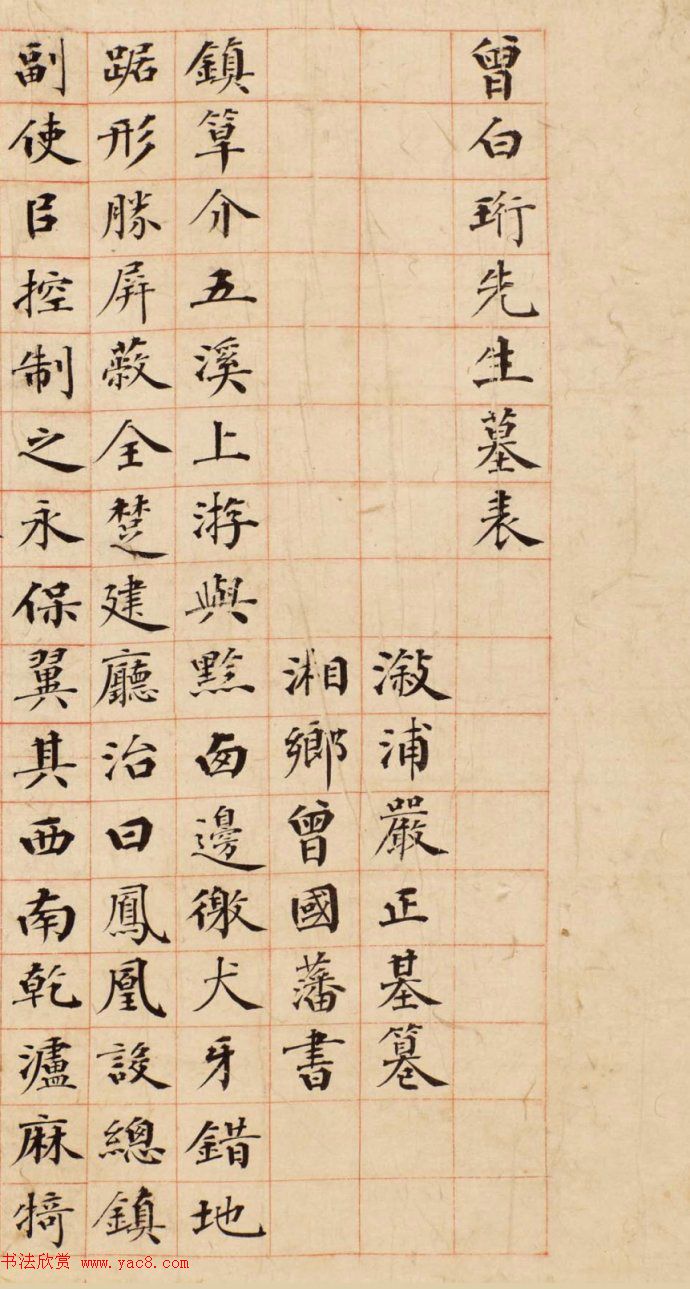 曾白珩先生墓表
漵浦嚴正基篹
湘鄉曾國藩書
鎮筸介五溪上游與黔西邊徼犬牙錯地
踞形勝屏蔽全楚建廳治曰鳳凰設總鎮
副使臣控制之永保翼其西南乾瀘麻犄
书法欣赏 www.yac8.com